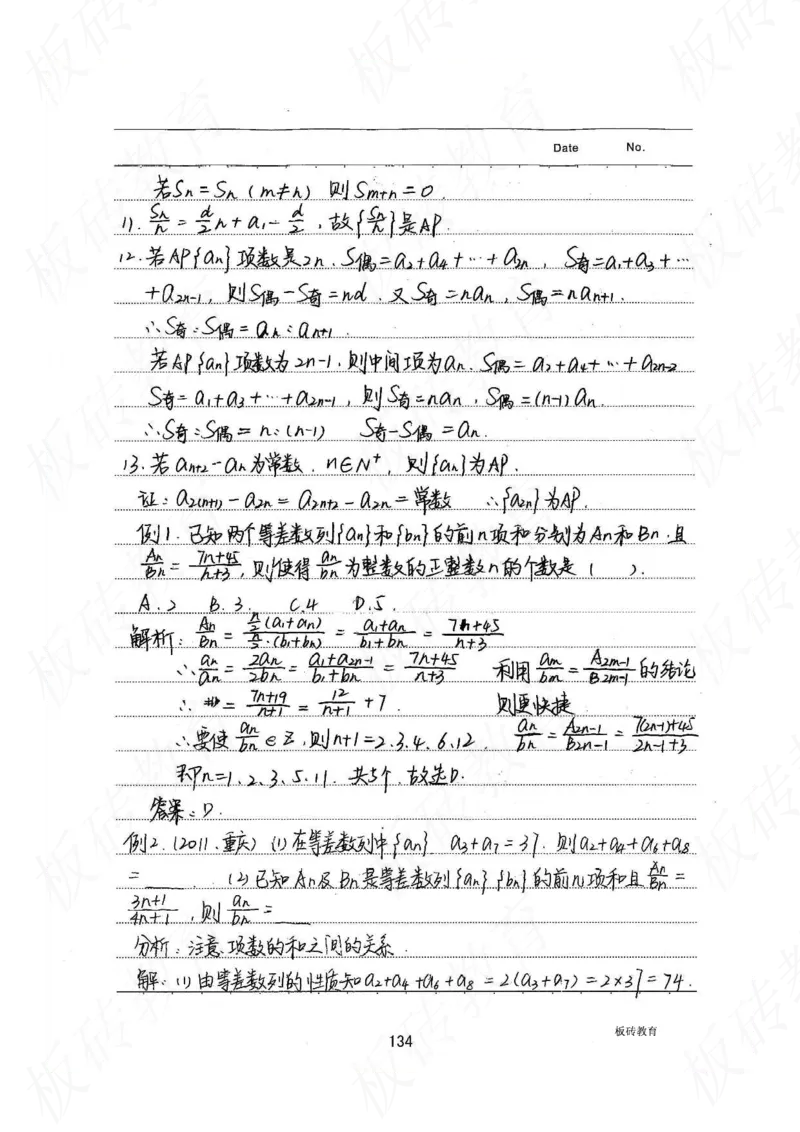 Date No.
若Sn=Sn (m≠n) 则Sm+n=0
11. Sn/n = d/2 n + a1 - d/2 , 故{Sn/n}是AP.
12. 若AP{an}项数是2n. S偶=a2+a4+…+a2n , S奇=a1+a3+…
+a2n-1, 则S偶-S奇=nd. 又S奇=nan, S偶=nan+1.
∴S奇:S偶=an:an+1.
若AP{an}项数为2n-1.则中间项为an. S偶=a2+a4+…+a2n-2
S奇=a1+a3+…+a2n-1, 则S奇=nan, S偶=(n-1)an.
∴S奇:S偶=n:(n-1) S奇-S偶=an.
13. 若an+2-an为常数. n∈N+, 则{an}为AP.
证: a2(n+1)-a2n=a2n+2-a2n=常数 ∴{a2n}为AP.
例1. 已知两个等差数列{an}和{bn}的前n项和分别为An和Bn.且
An/Bn = (7n+45)/(n+3), 则使得 an/bn 为整数的正整数n的个数是 ( ).
A.2 B.3. C.4 D.5.
解析: An/Bn = (n/2 (a1+an))/(n/2·(b1+bn)) = (a1+an)/(b1+bn) = (7n+45)/(n+3)
∴ an/an = 2an/2bn = (a1+a2n-1)/(b1+bn) = (7n+45)/(n+3) 利用 am/bm = A2m-1/B2m-1 的结论
∴ = (7n+19)/(n+1) = 12/(n+1) + 7. 则更快捷
∴要使 an/bn ∈Z, 则n+1=2.3.4.6.12. an/bn = A2n-1/B2n-1 = (7(2n-1)+45)/(2n-1+3)
即n=1.2.3.5.11. 共5个.故选D.
答案:D.
例2.(2011.重庆) (1)在等差数列中{an} a3+a7=37. 则a2+a4+a6+a8
=____. (2)已知An及Bn是等差数列{an}{bn}的前n项和且 An/Bn =
(3n+1)/(4n+1) , 则 an/bn =____
分析: 注意项数的和之间的关系.
解: (1)由等差数列的性质知a2+a4+a6+a8=2(a3+a7)=2×37=74.
134
板砖教育